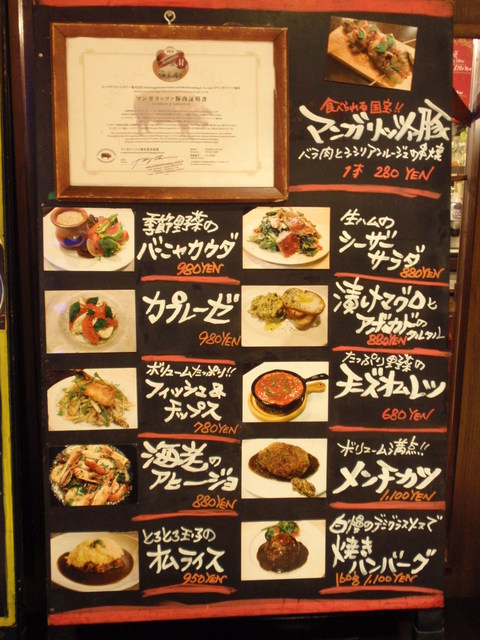 マンガリッツァ豚肉証明書
食べられる国宝!!
マンガリッツァ豚
バラ肉とシシリアンルージュの串焼
1本 280 YEN
季節野菜の
バーニャカウダ
980YEN
生ハムの
シーザー
サラダ
880YEN
カプレーゼ
980YEN
漬けマグロと
アボカドの
タルタル
880YEN
ボリュームたっぷり!!
フィッシュ&
チップス
780YEN
たっぷり野菜の
チーズオムレツ
680YEN
海老の
アヒージョ
880YEN
ボリューム満点!!
メンチカツ
1,100YEN
とろとろ玉子の
オムライス
950YEN
自慢のデミグラスソースで
焼き
ハンバーグ
160g 1,100YEN